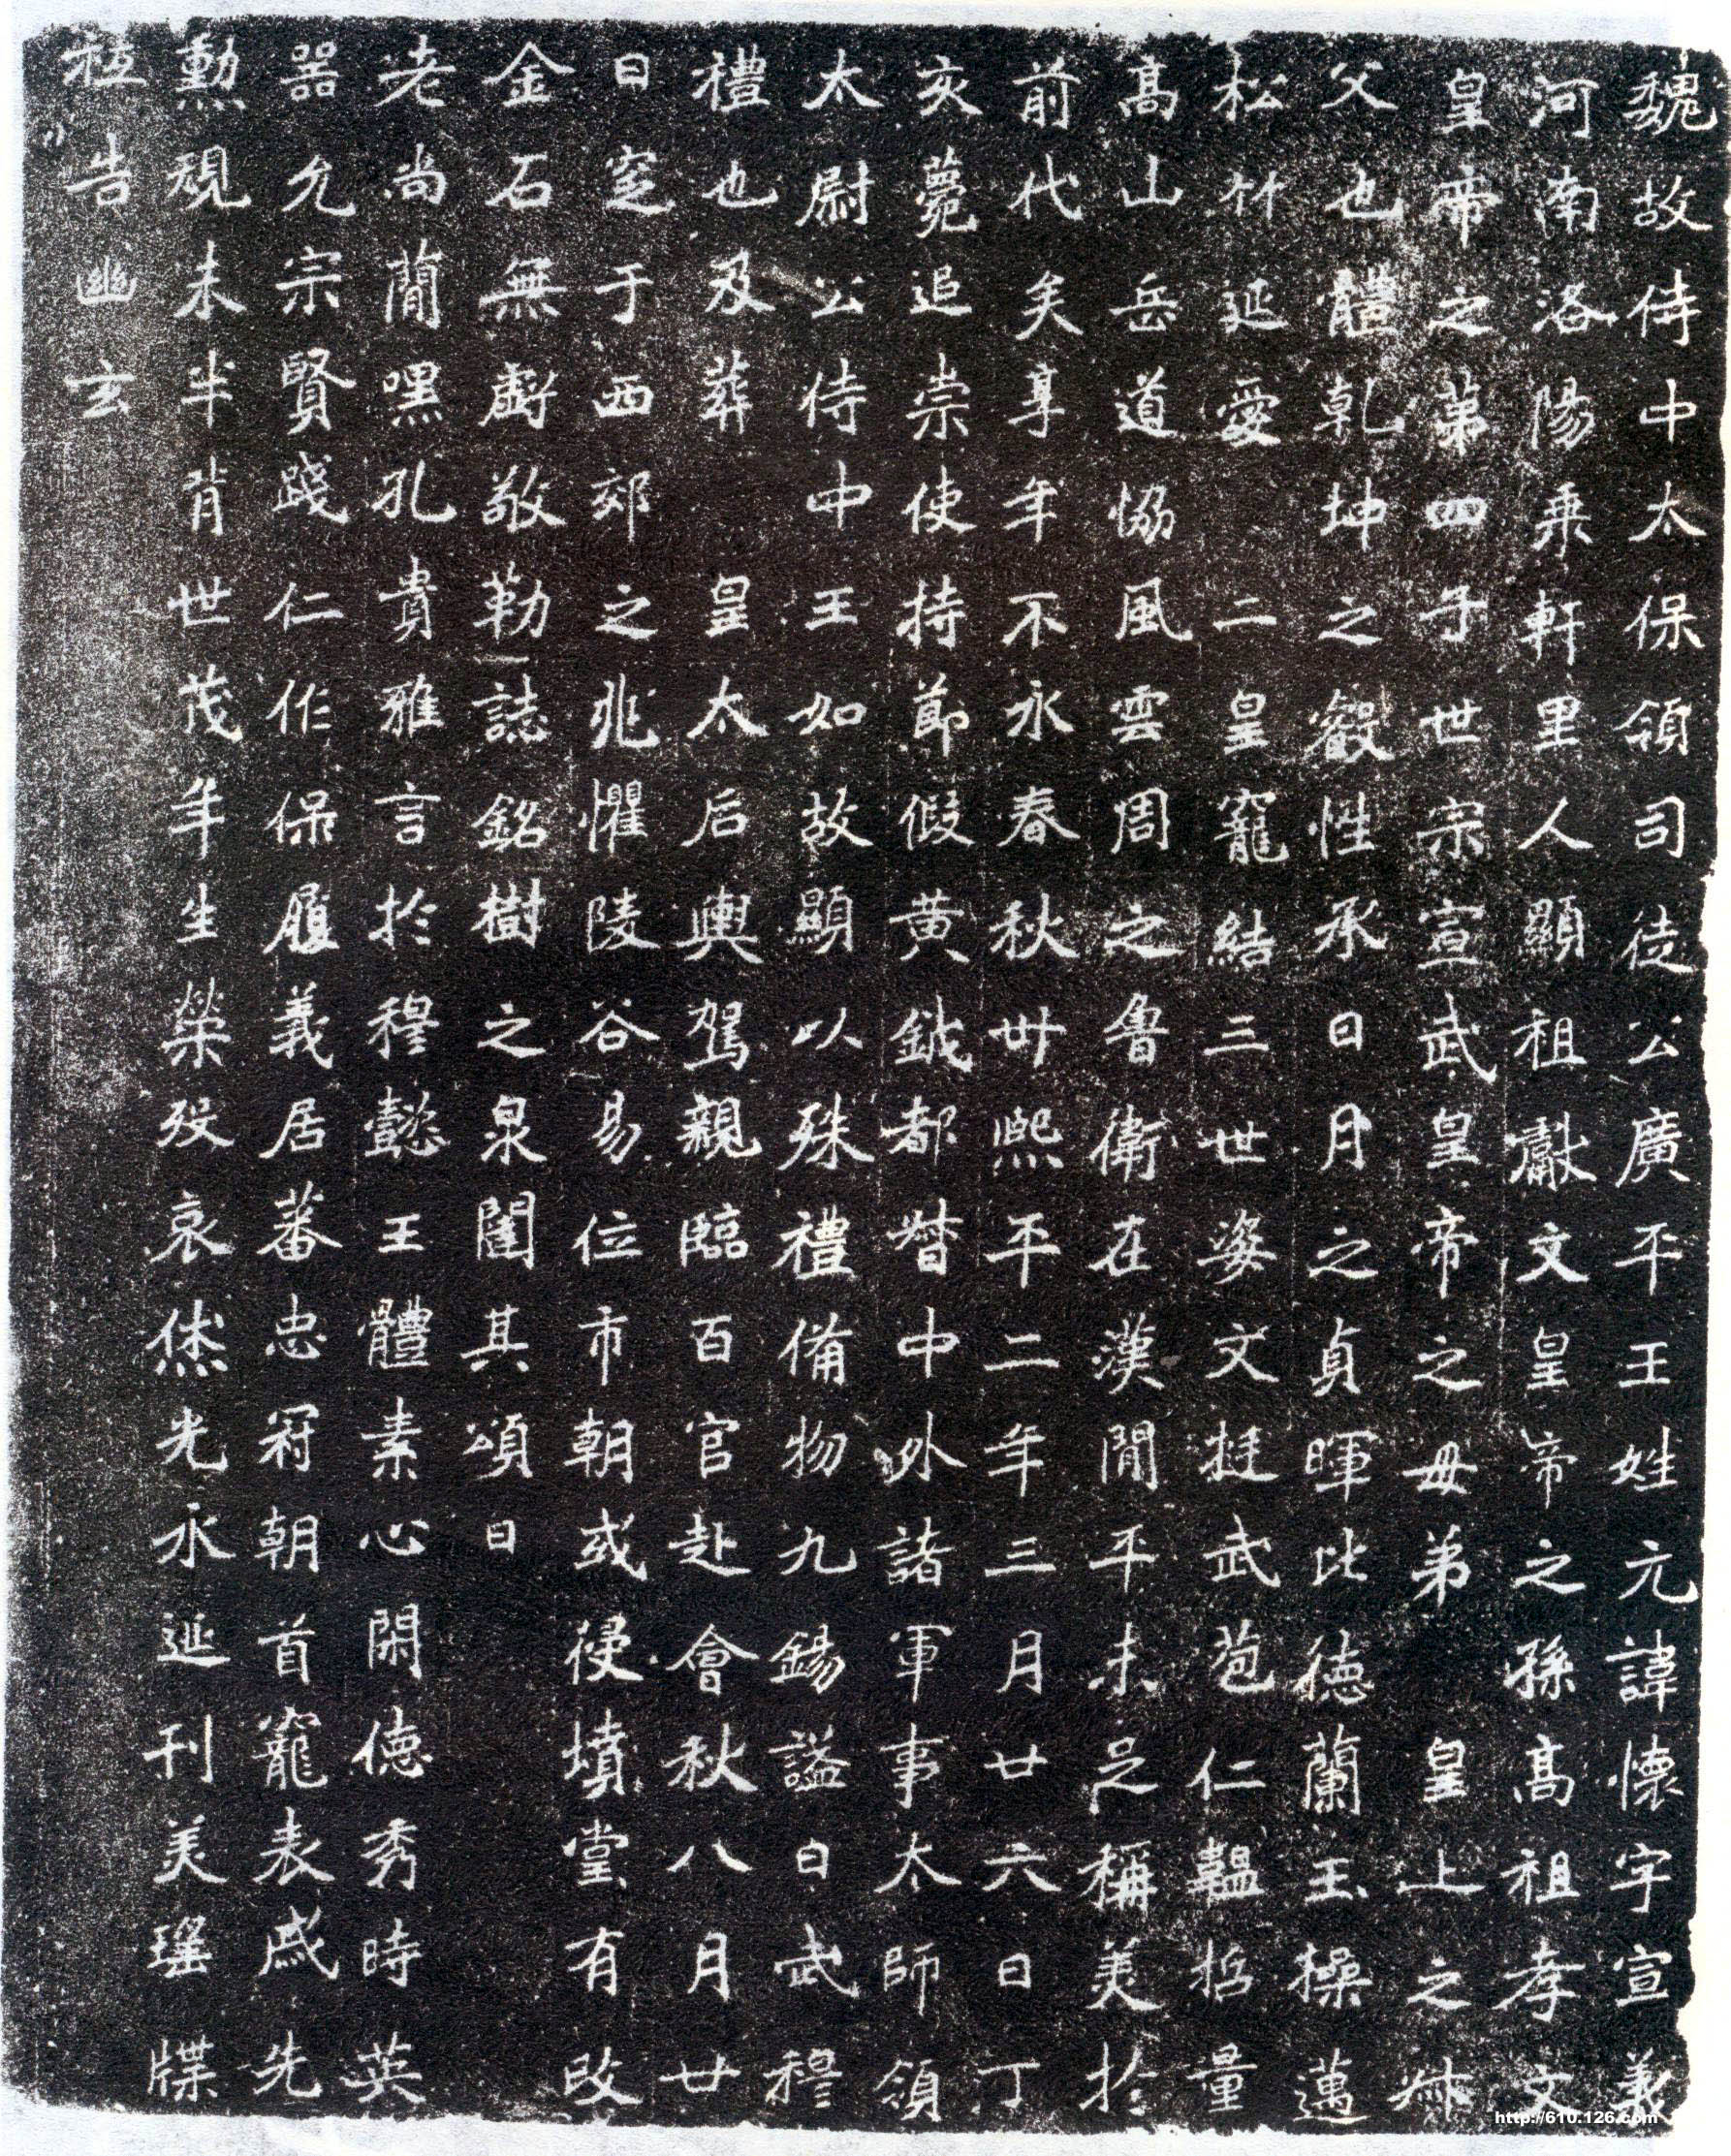 魏故侍中太保領司徒公廣平王姓元諱懷字宣義
河南洛陽乘軒里人顯祖獻文皇帝之孫高祖孝文
皇帝之第四子世宗宣武皇帝之母弟皇上之叔
父也體乾坤之叡性承日月之貞暉比德蘭玉操邁
松竹延愛二皇寵結三世姿文挺武苞仁韞哲量
高山岳道協風雲周之魯衛在漢閒平未足稱美於
前代矣享年不永春秋卅熙平二年三月廿六日丁
亥薨追崇使持節假黃鉞都督中外諸軍事太師領
太尉公侍中王如故顯以殊禮備物九錫謚曰武穆
禮也及葬皇太后輿駕親臨百官赴會秋八月廿
日窆于西郊之兆懼陵谷易位市朝或侵墳堂有改
金石無虧敬勒誌銘樹之泉闥其頌曰
老尚簡嘿孔貴雅言於穆懿王體素心閑德秀時英
器允宗賢踐仁作保履義居蕃忠冠朝首寵表戚先
勳規未半背世茂年生榮歿哀休光永延刊美瑤牒
式告幽玄
http://610.126.com